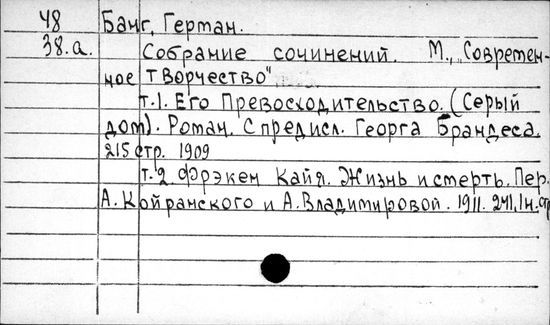 48 Банг, Герман.
38.а. Собрание сочинений. М., „Современ-
ное творчество"
т.1. Его Превосходительство. (Серый
дом). Роман. С предисл. Георга Брандеса.
215 стр. 1909
т.2. Фрэкен Кайя. Жизнь и смерть. Пер.
А. Койранского и А. Владимировой. 1911. 241, 1 н. стр